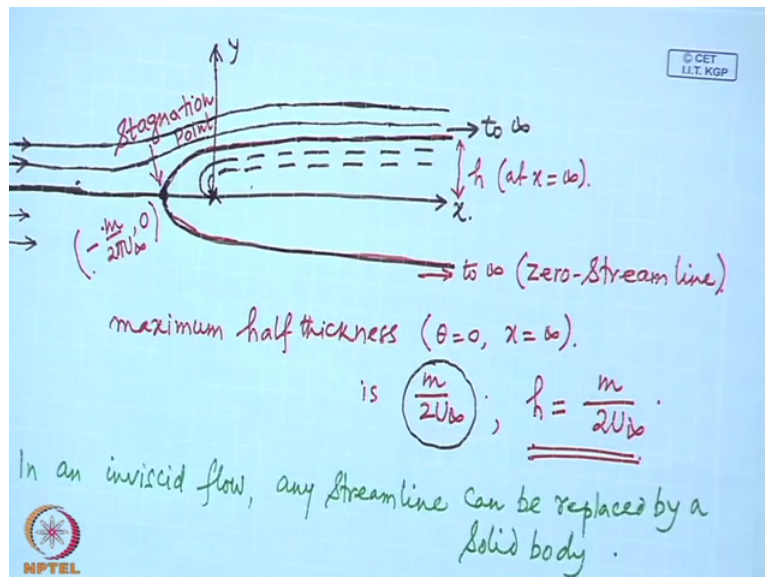 y
© CET
I.I.T. KGP
Stagnation
Point
to ∞
h (at x = ∞).
x.
(-m/2πU∞, 0)
to ∞ (zero-streamline)
maximum half thickness (θ=0, x=∞).
is m/2U∞ ; h = m/2U∞ .
In an inviscid flow, any streamline can be replaced by a
solid body .
NPTEL